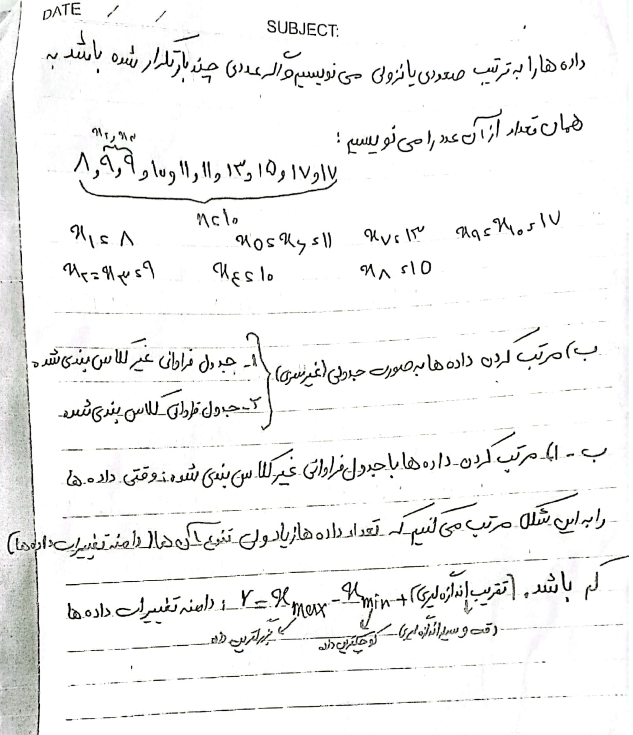 DATE / /
SUBJECT:
داده ها را به ترتیب صعودی یا نزولی می نویسیم و اگر عددی چند بار تکرار شده باشد به
همان تعداد از آن عدد را می نویسیم :
x₂ , x₃
۸ , ۹ , ۹ , ۱۰ , ۱۱ , ۱۱ , ۱۳ , ۱۵ , ۱۷ , ۱۷
n = ۱۰
x₁ = ۸ x₅ = x₆ = ۱۱ x₇ = ۱۳ x₉ = x₁₀ = ۱۷
x₂ = x₃ = ۹ x₄ = ۱۰ x₈ = ۱۵
ب) مرتب کردن داده ها به صورت جدولی (غیر سری) { ۱- جدول فراوانی غیر کلاس بندی شده
۲- جدول فراوانی کلاس بندی شده
ب - ۱) مرتب کردن داده ها با جدول فراوانی غیر کلاس بندی شده : وقتی داده ها
را به این شکل مرتب می کنیم که تعداد داده ها زیاد ولی تنوع آن ها (دامنه تغییرات داده ها)
کم باشد. (تقریب اندازه گیری) + r = x max - x min : دامنه تغییرات داده ها
دقت وسیله اندازه گیری کوچکترین داده بزرگترین داده